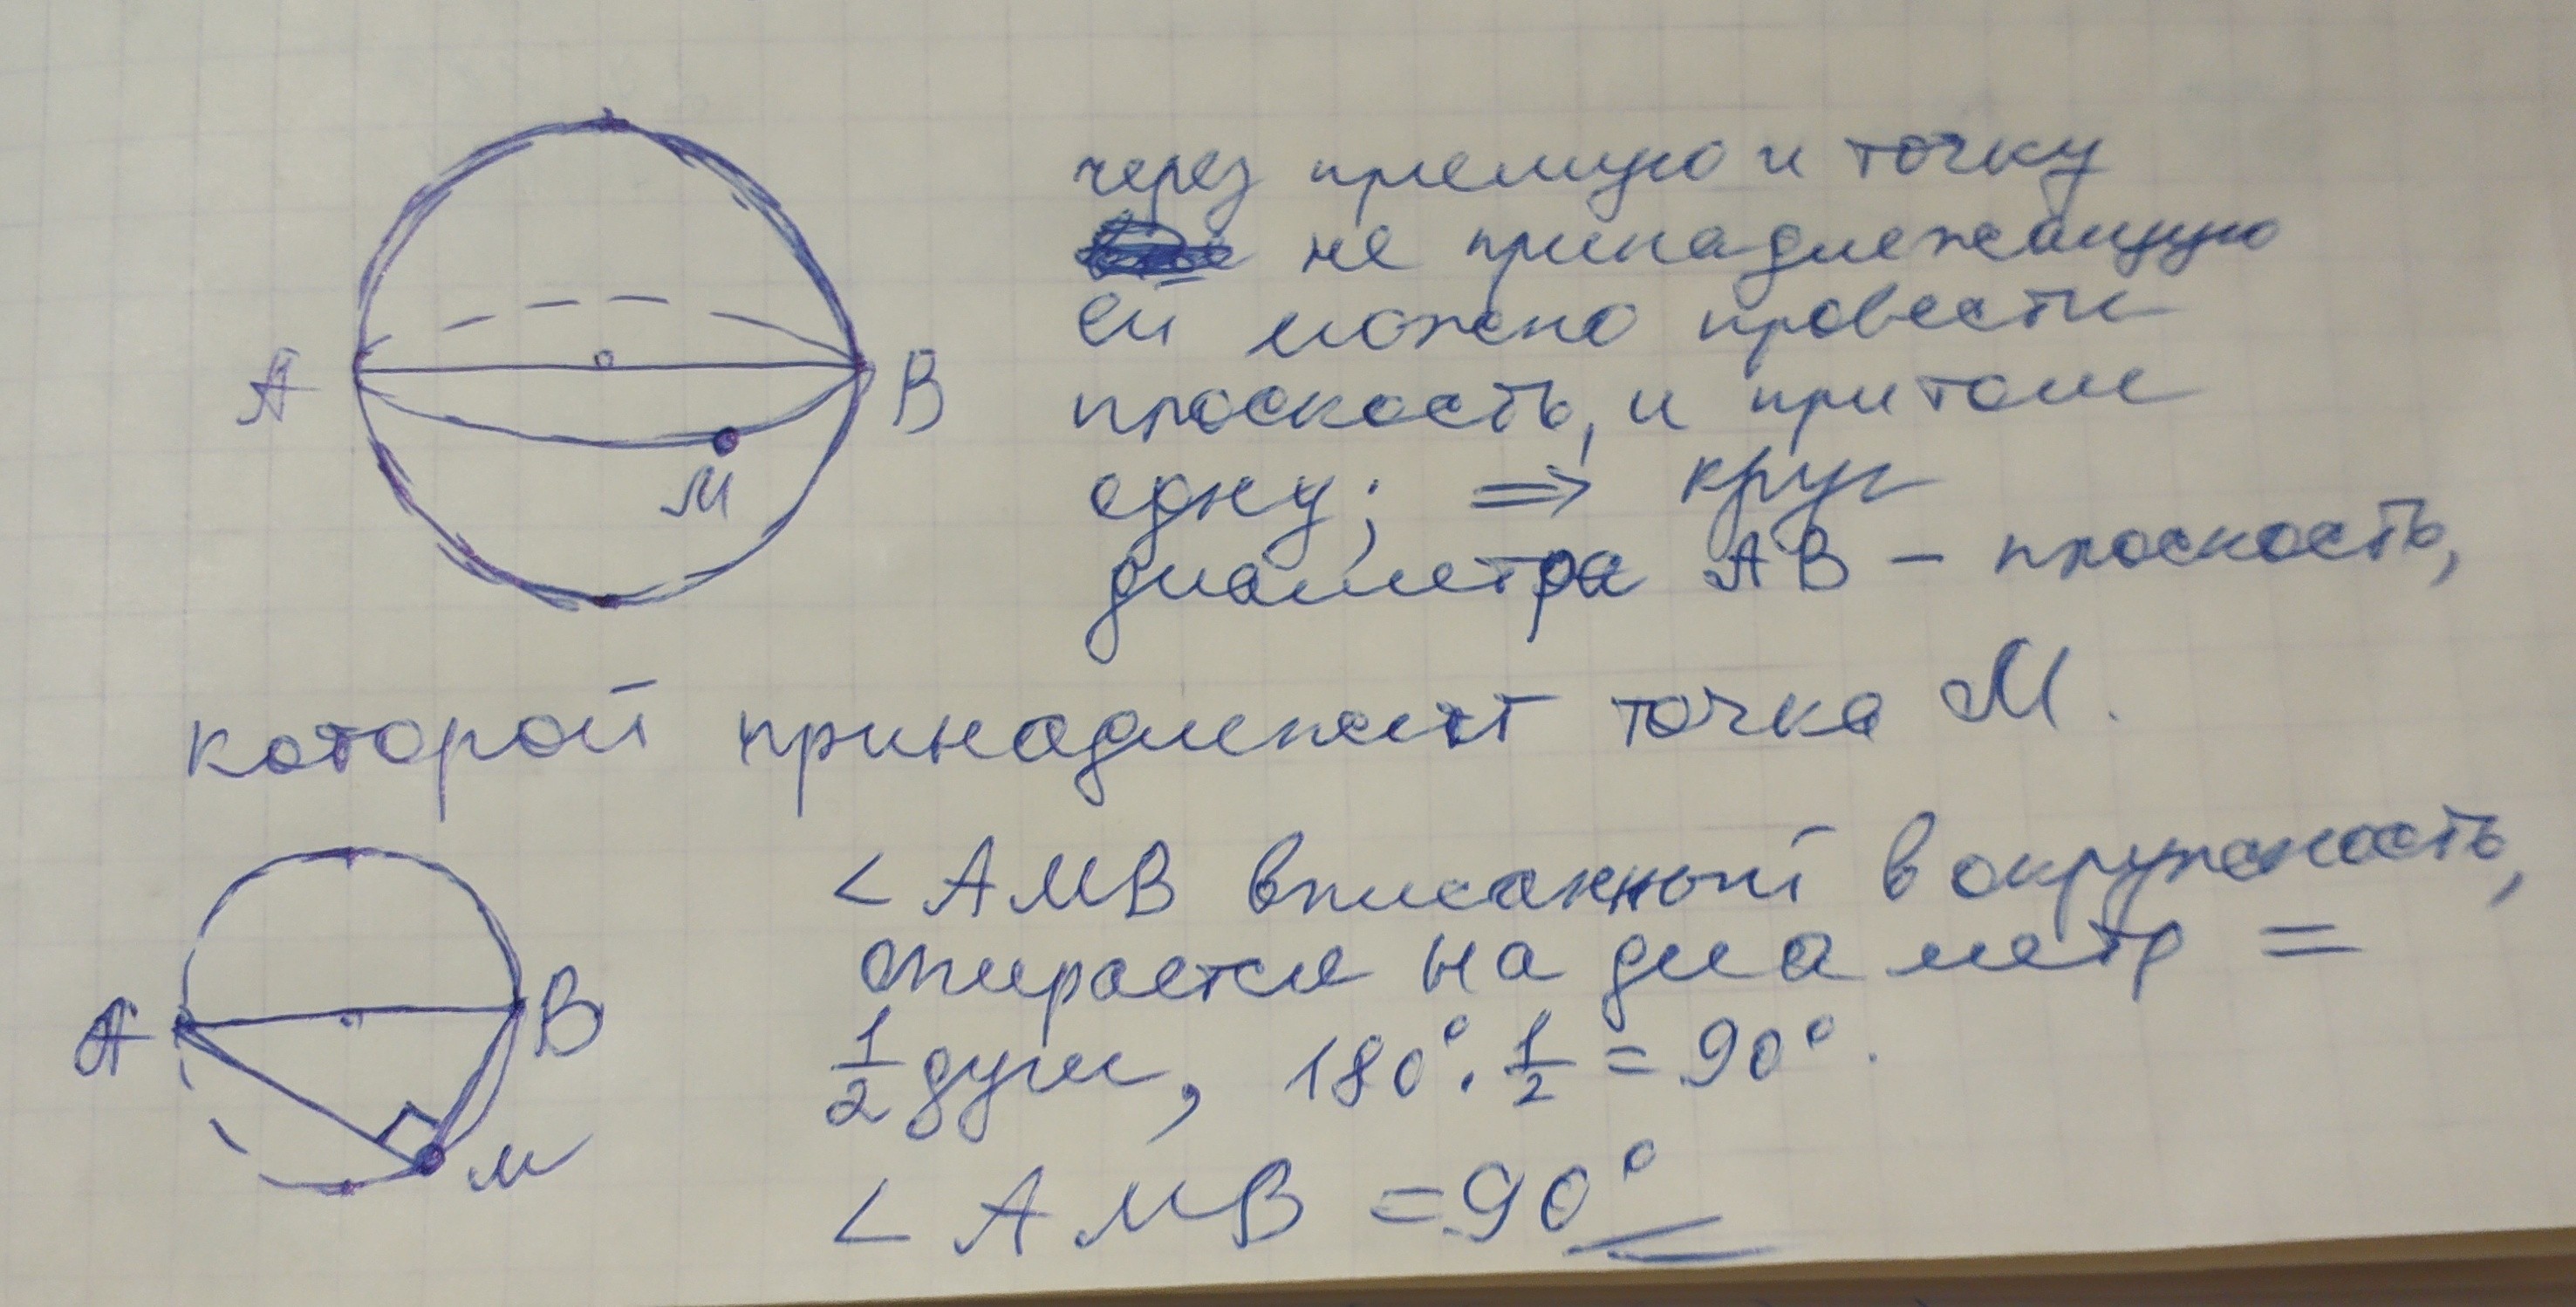 через прямую и точку
не принадлежащую
ей можно провести
плоскость, и притом
одну; ⇒ круг
диаметра AB – плоскость,
A B
M
которой принадлежит точка M.
∠AMB вписанный в окружность,
опирается на диаметр =
A B
1/2 дуги, 180° · 1/2 = 90°.
M
∠AMB = 90°